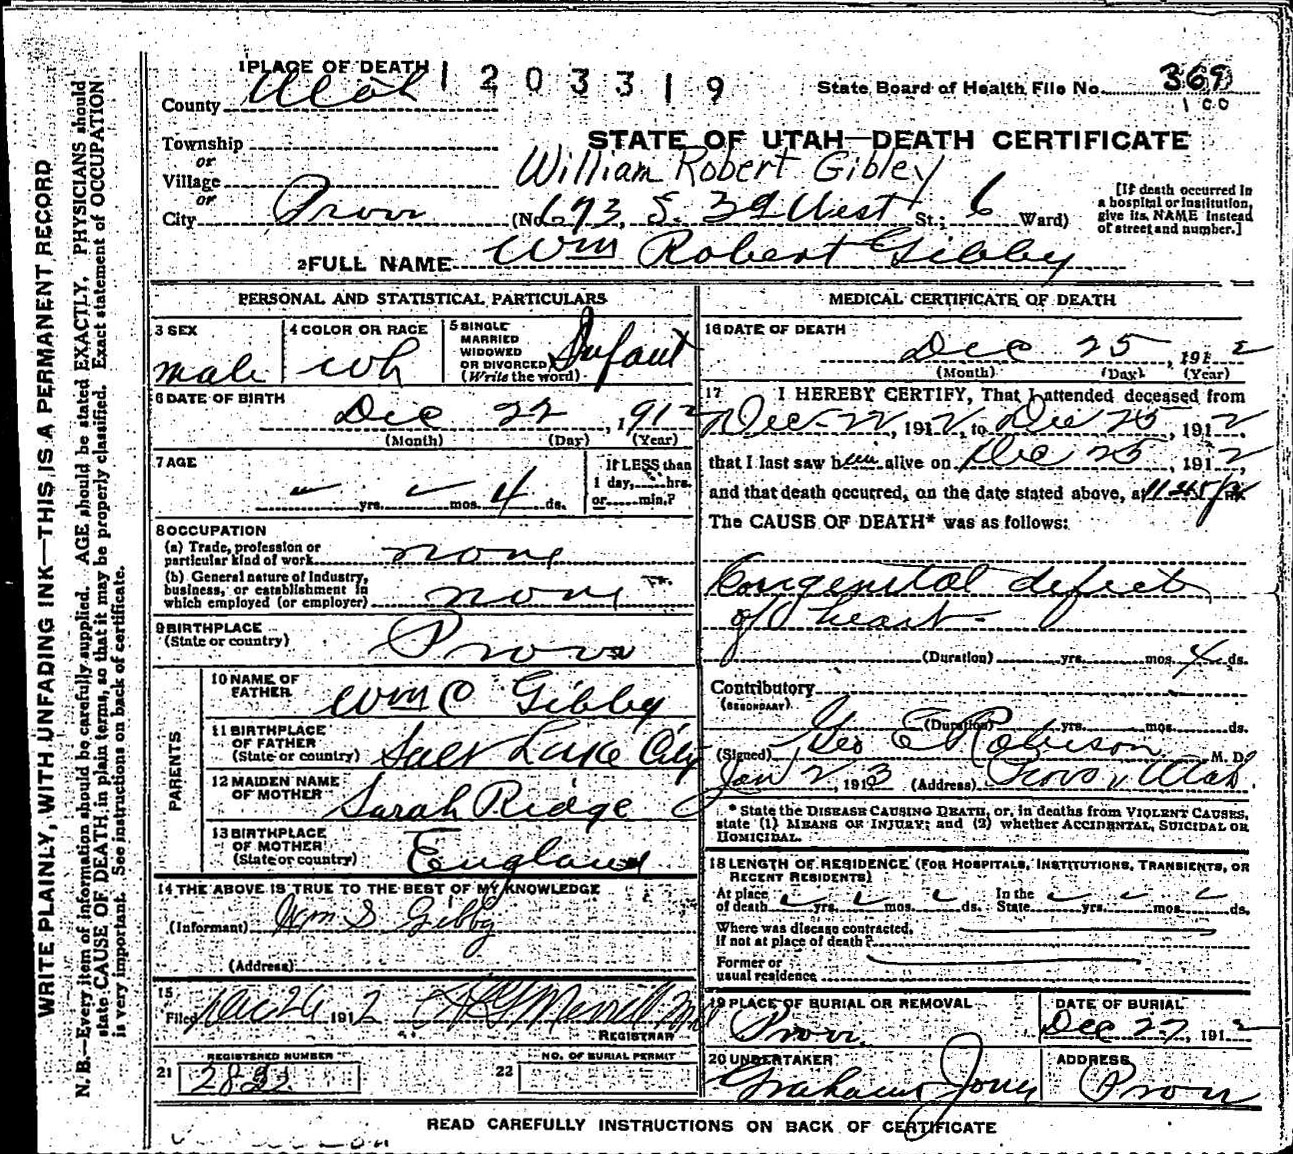 1 PLACE OF DEATH
1203319
State Board of Health File No. 369
100
County Utah
STATE OF UTAH—DEATH CERTIFICATE
Township
or
Village
or
City Provo
William Robert Gibley
(No. 673, S. 3d West St.; 6 Ward)
[If death occurred in
a hospital or institution,
give its NAME instead
of street and number.]
2 FULL NAME Wm Robert Gibby
PERSONAL AND STATISTICAL PARTICULARS
3 SEX
male
4 COLOR OR RACE
wh
5 SINGLE
MARRIED
WIDOWED
OR DIVORCED
(Write the word)
Infant
6 DATE OF BIRTH
Dec 22, 1912
(Month) (Day) (Year)
7 AGE
— yrs. — mos. 4 ds.
If LESS than
1 day, hrs.
or min.?
8 OCCUPATION
(a) Trade, profession or
particular kind of work none
(b) General nature of Industry,
business, or establishment in
which employed (or employer) none
9 BIRTHPLACE
(State or country) Provo
PARENTS
10 NAME OF
FATHER Wm C Gibby
11 BIRTHPLACE
OF FATHER
(State or country) Salt Lake City
12 MAIDEN NAME
OF MOTHER Sarah Ridge
13 BIRTHPLACE
OF MOTHER
(State or country) England
14 THE ABOVE IS TRUE TO THE BEST OF MY KNOWLEDGE
(Informant) Wm S Gibby
(Address)
15
Filed Dec 26 1912 Merrill
REGISTRAR
REGISTERED NUMBER
21
NO. OF BURIAL PERMIT
22
MEDICAL CERTIFICATE OF DEATH
16 DATE OF DEATH
Dec 25, 1912
(Month) (Day) (Year)
17 I HEREBY CERTIFY, That I attended deceased from
Dec 22, 1912, to Dec 25, 1912,
that I last saw him alive on Dec 25, 1912,
and that death occurred, on the date stated above, at 11:45 P M.
The CAUSE OF DEATH* was as follows:
Congenital defect
of heart
(Duration) yrs. mos. 4 ds.
Contributory
(SECONDARY)
(Duration) yrs. mos. ds.
(Signed) Geo E Robison M. D.
Jan 2, 1913 (Address) Provo, Utah
* State the DISEASE CAUSING DEATH, or, in deaths from VIOLENT CAUSES,
state (1) MEANS OF INJURY; and (2) whether ACCIDENTAL, SUICIDAL OR
HOMICIDAL.
18 LENGTH OF RESIDENCE (FOR HOSPITALS, INSTITUTIONS, TRANSIENTS, OR
RECENT RESIDENTS)
At place In the
of death yrs. mos. ds. State yrs. mos. ds.
Where was disease contracted,
if not at place of death?
Former or
usual residence
19 PLACE OF BURIAL OR REMOVAL
Provo
DATE OF BURIAL
Dec 27, 1912
20 UNDERTAKER
Graham Jones
ADDRESS
Provo
READ CAREFULLY INSTRUCTIONS ON BACK OF CERTIFICATE
WRITE PLAINLY, WITH UNFADING INK—THIS IS A PERMANENT RECORD
N. B.—Every item of information should be carefully supplied. AGE should be stated EXACTLY, PHYSICIANS should
state CAUSE OF DEATH in plain terms, so that it may be properly classified. Exact statement of OCCUPATION
is very important. See instructions on back of certificate.